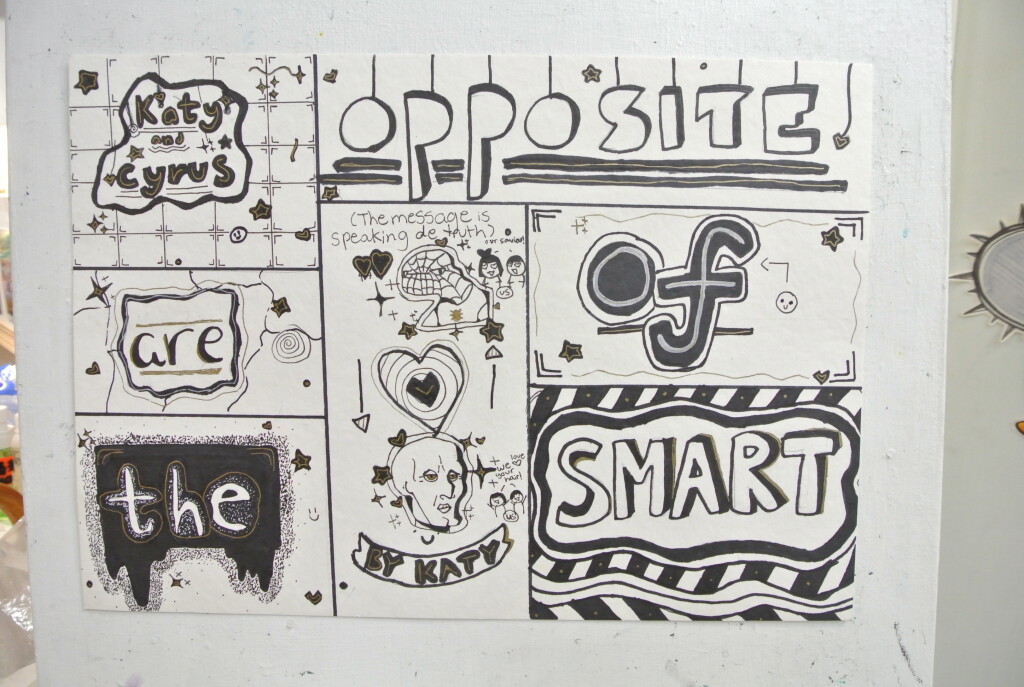 Katy
and
cyrus
are
the
OPPOSITE
(The message is
speaking de truth)
our saviour
US
we love
your
hair!
US
BY KATY
Of
SMART